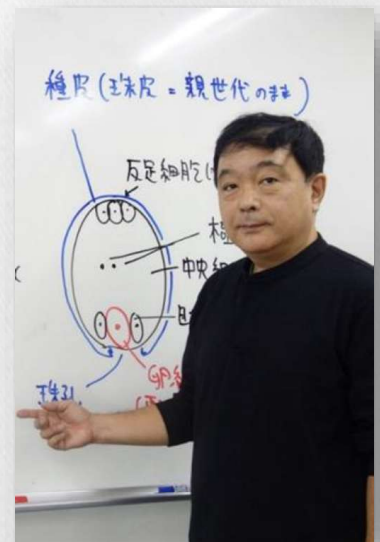 種皮(珠皮 = 親世代のまま)
反足細胞(
極
中央細
卵
珠孔